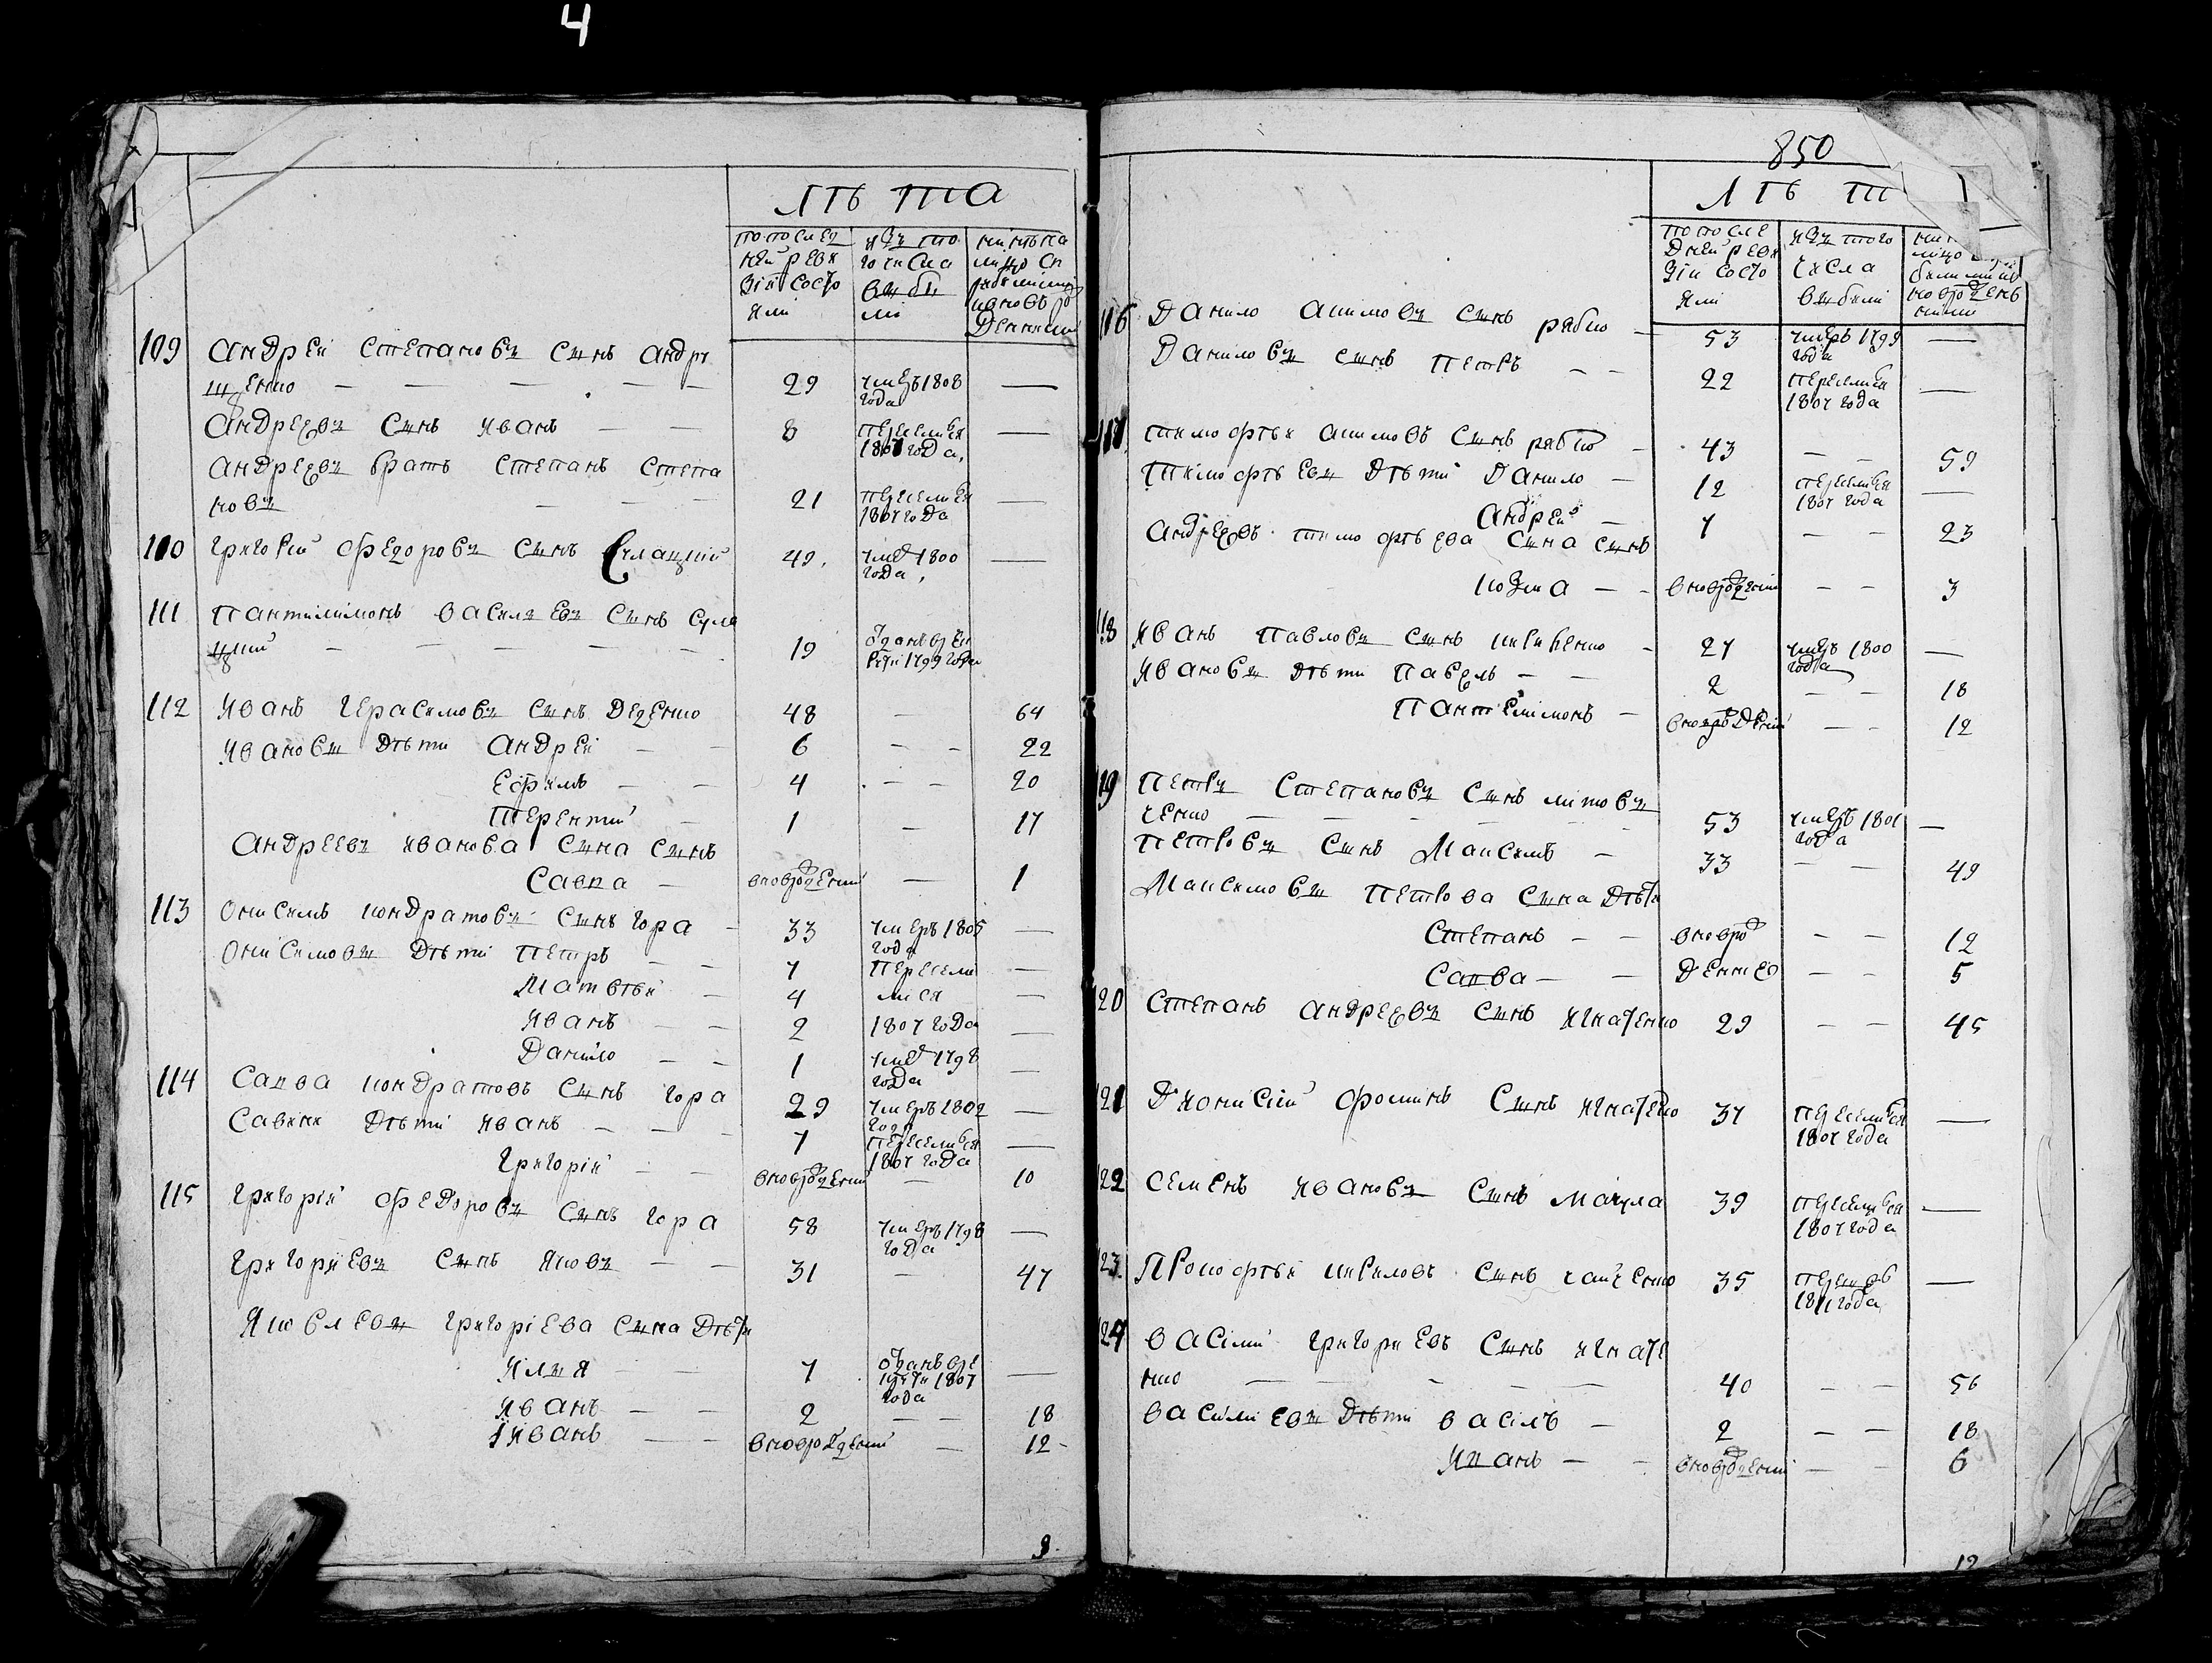 4
ЛѢТА
по послед ней реви зіи состо яли
изъ то го числа выбы ли
109 Андрей Степановъ сынъ Андрю
щенко — — — — 29 умеръ 1808 года —
Андреевъ сынъ Иванъ — — 8 —
Андреевъ братъ Степанъ Степа
новъ — — 21 переселився 1807 года —
110 Григорій Федоровъ сынъ 49 умер 1800 года —
111 Пантилимонъ Василіевъ сынъ
19 1799 года
112 Иванъ Герасимовъ сынъ Деденко 48 — 64
Ивановы дѣти Андрей — — 6 — — 22
Ефимъ — — 4 — — 20
Терентій — 1 — 17
Андреевъ Иванова сына сынъ
Савка — вноврожденый — 1
113 Онисимъ Кондратовъ сынъ Гора — 33 умеръ 1805 года —
Онисимовы дѣти Петръ — — 7 пересели —
Матвѣй — 4 лися —
Иванъ — — 2 1807 года —
Данило — — 1 умер 1798 года —
114 Савва Кондратовъ сынъ Гора 29 умеръ 1802 года —
Савины дѣти Иванъ — — — 7 переселився 1807 года —
Григорій — — вноврожденый — 10
115 Григорій Федоровъ сынъ Гора 58 умеръ 1798 года —
Григоріевъ сынъ Яковъ — — 31 — 47
Яковлевы Григоріева сына дѣти
Илья — — 7 1807 года —
Иванъ — — 2 — — 18
Иванъ — — вноврожденый — 12
9
850
ЛѢТ
по после дней реви зіи состо яли
изъ того числа выбыли
116 Данило Акимовъ сынъ Рябко — 53 умеръ 1799 года —
Даниловъ сынъ Петръ — — 22 переселився 1807 года —
117 Тимофѣй Акимовъ сынъ Рябко — 43 — — 59
Тимофѣевы дѣти Данило — 12 переселився 1807 года —
Андрей — 7 — — 23
Андреевъ Тимофѣева сына сынъ
Козма — — вноврожденый — — 3
118 Иванъ Павловъ сынъ Кириенко — 27 умеръ 1800 года —
Ивановы дѣти Павелъ — — 2 — — 18
Пантелимонъ — вноврожденый — — 12
119 Петръ Степановъ сынъ Литовъ
ченко — — — 53 умеръ 1801 года —
Петровъ сынъ Максимъ — 33 — — 49
Максимовы Петрова сына дѣти
Степанъ — — вноврож — — 12
Савва — — денные — — 5
120 Степанъ Андреевъ сынъ Игнатенко 29 — — 45
121 Діонисій Фоминъ сынъ Игнатенко 37 переселився 1807 года —
122 Семенъ Ивановъ сынъ Макула 39 переселився 1807 года —
123 Прокофѣй Кириловъ сынъ Чайченко 35 1811 года —
124 Василий Григориевъ сынъ Игнате
нко — — — — 40 — — 56
Василиевы дѣти Васілъ — 2 — — 18
Иванъ — — вноврожденый — — 6
12